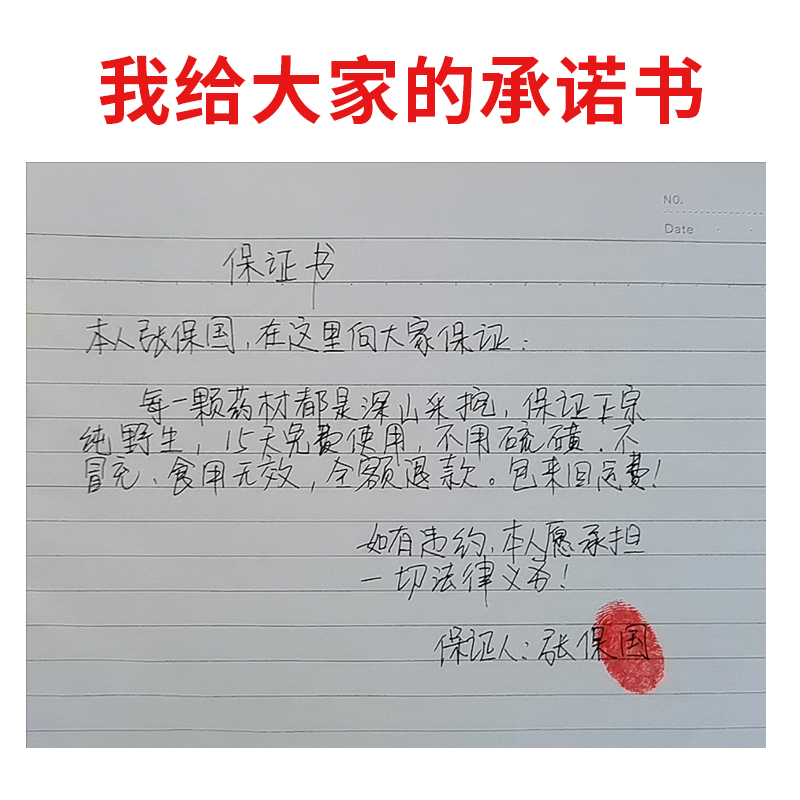 我给大家的承诺书
NO.
Date
保证书
本人张保国,在这里向大家保证:
每一颗药材都是深山采挖,保证正宗
纯野生,15天免费使用,不用硫磺、不
冒充、食用无效,全额退款。包来回运费!
如有违约,本人愿承担
一切法律义务!
保证人:张保国